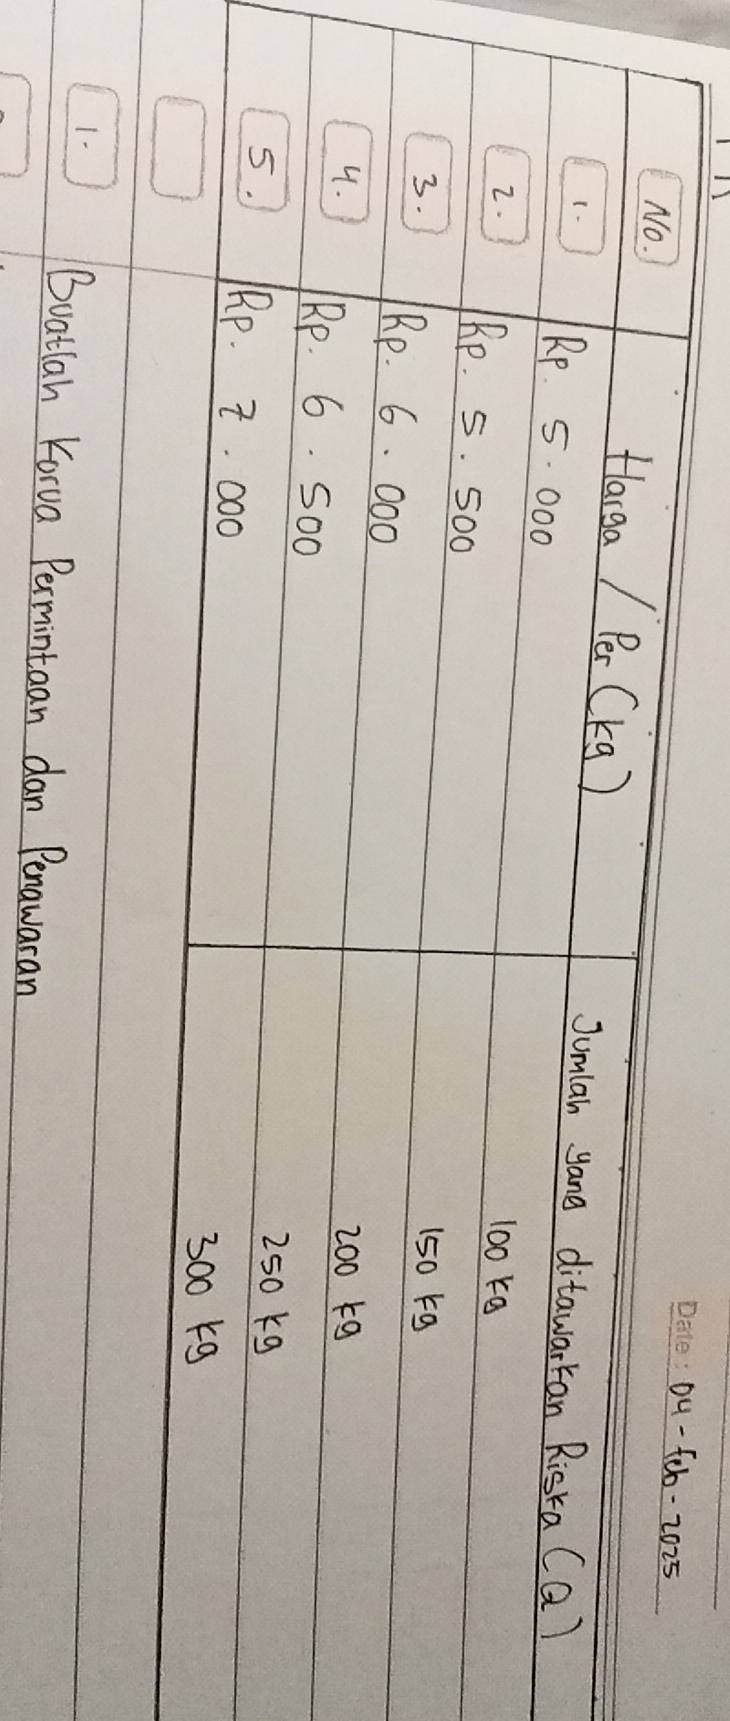 Date: 04-feb-2025
No. Harga / Per (kg) Jumlah yang ditawarkan Riska (Q)
1. Rp. 5.000 100 kg
2. Rp. 5.500 150 kg
3. Rp. 6.000 200 kg
4. Rp. 6.500 250 kg
5. Rp. 7.000 300 kg
1. Buatlah Korva Permintaan dan Penawaran